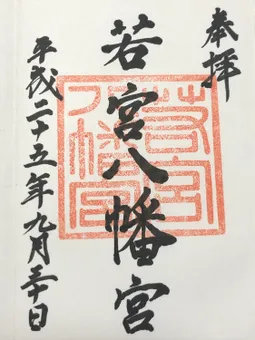 奉拝
若宮八幡宮
平成二十五年九月三十日
若宮八幡宮